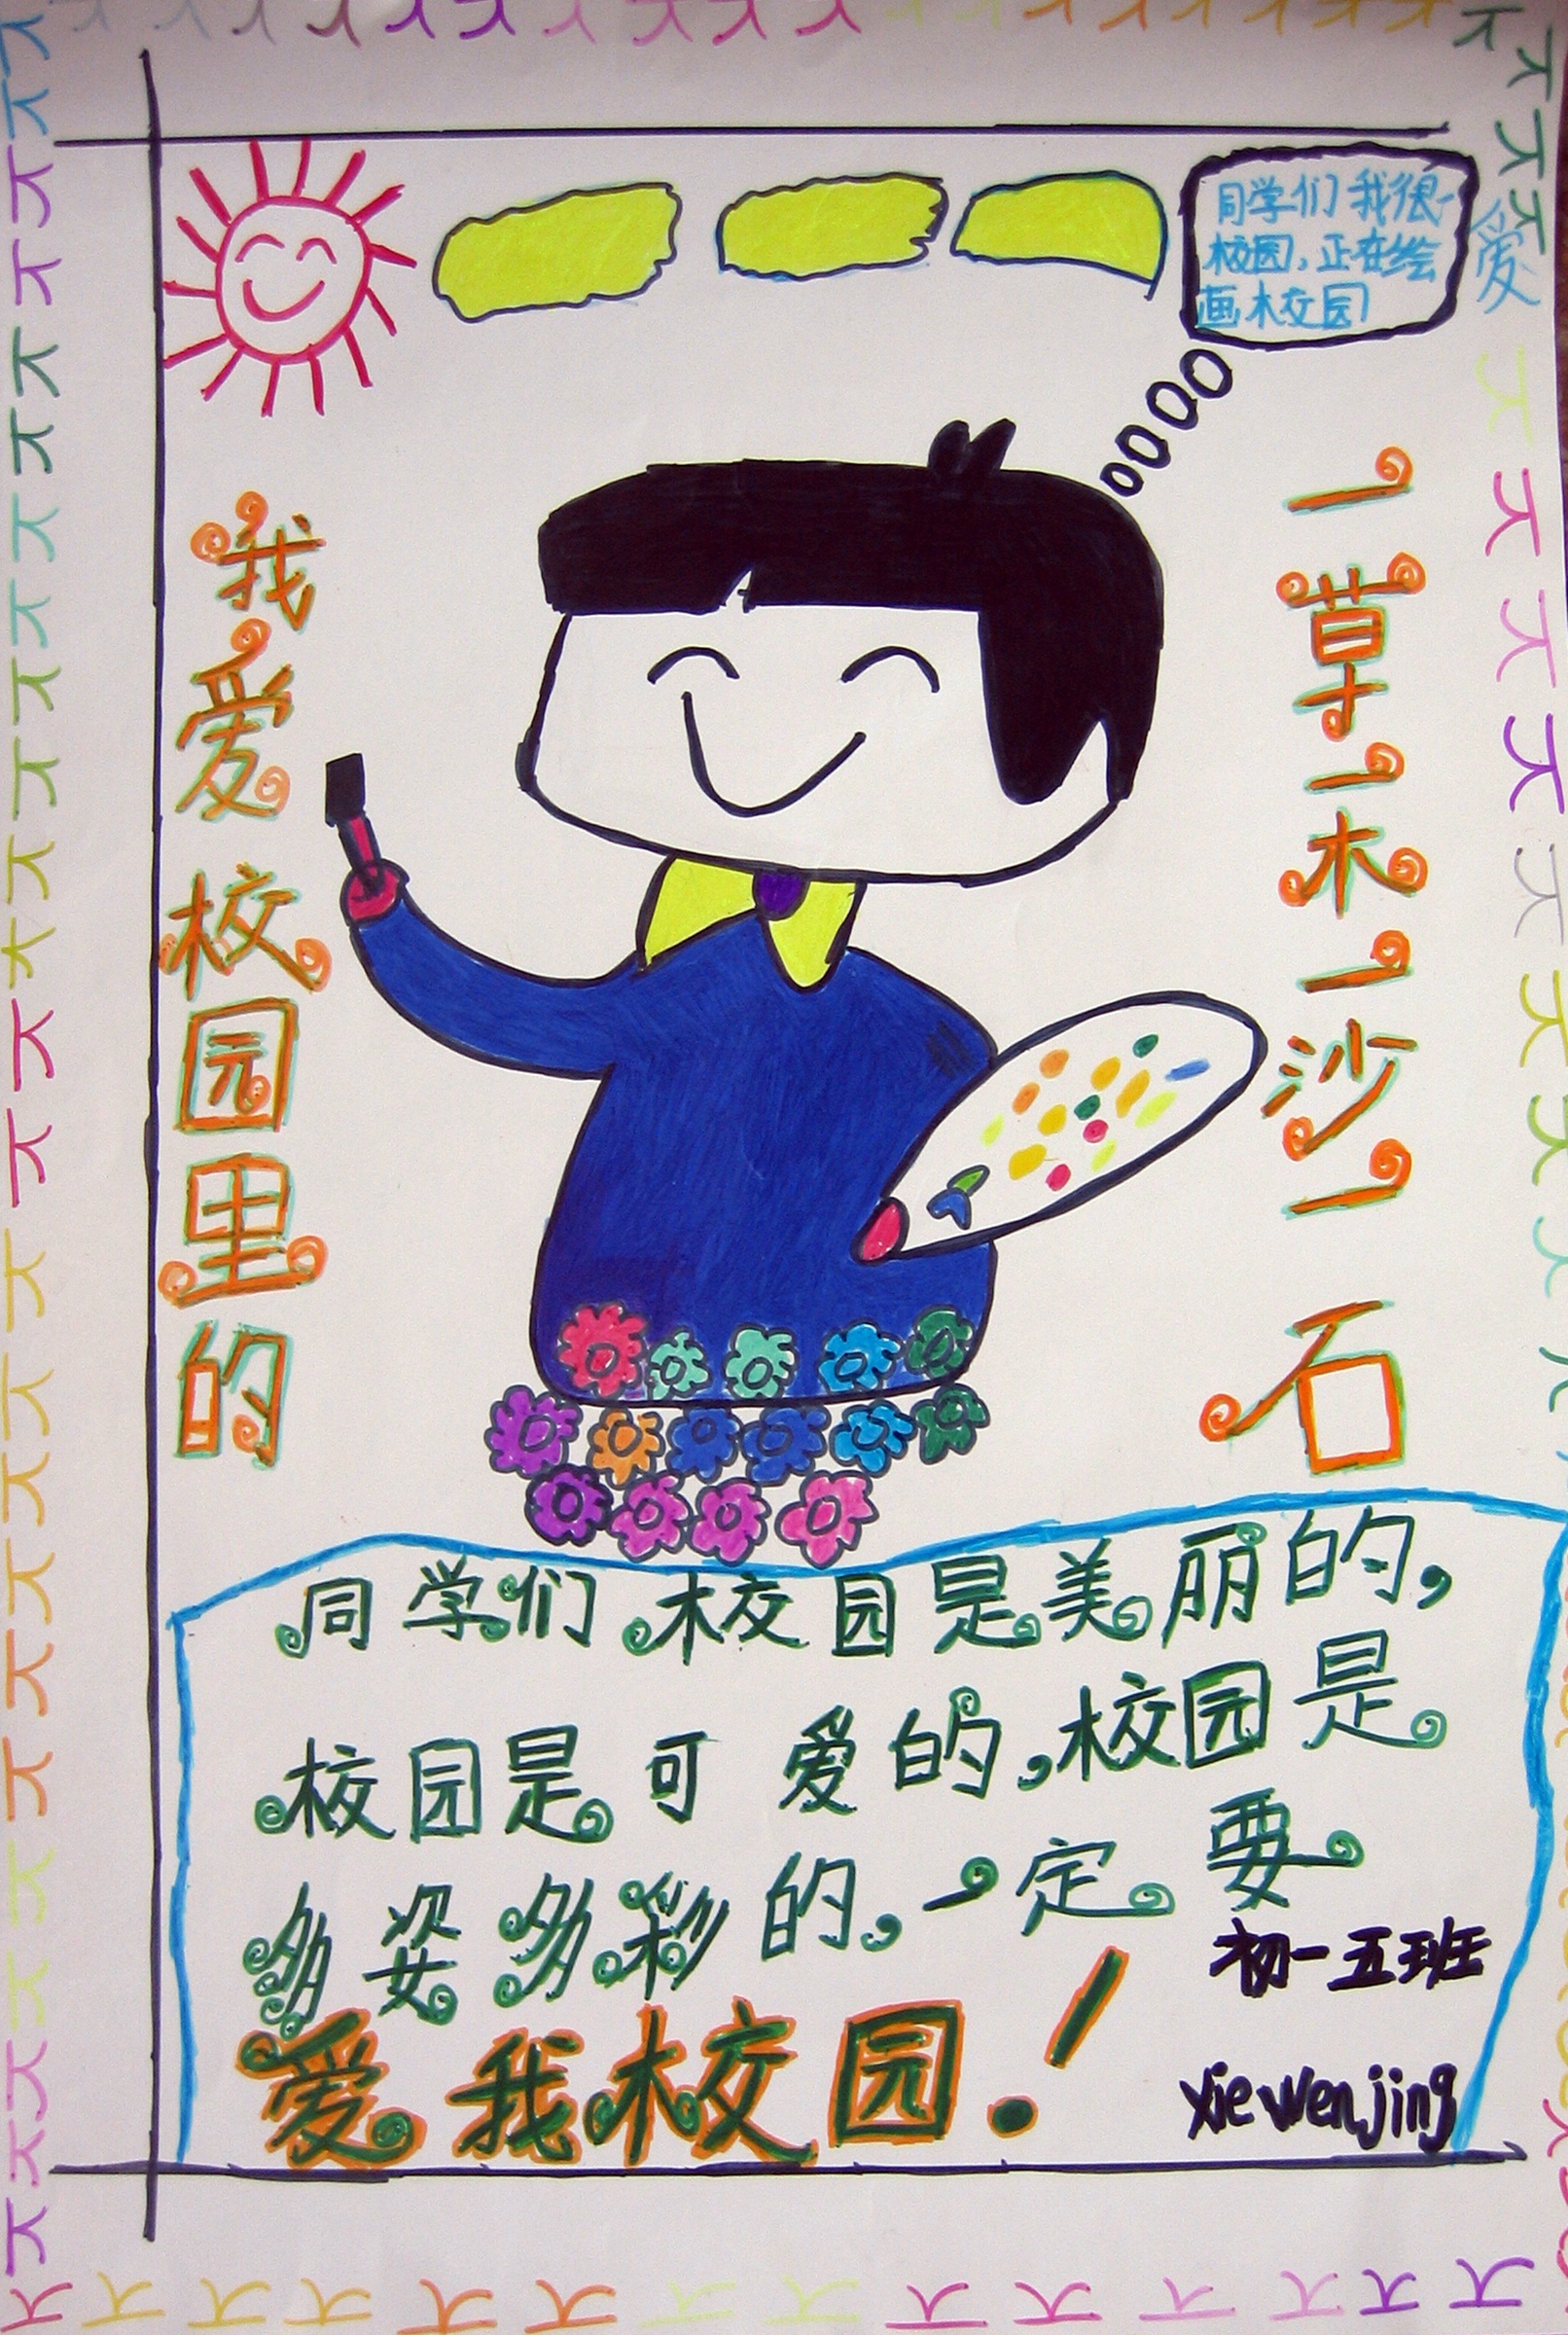 同学们我很爱
校园，正在绘
画校园
我爱校园里的
一草一木一沙一石
同学们校园是美丽的，
校园是可爱的，校园是
多姿多彩的，一定要
爱我校园！
初一五班
xiewenjing